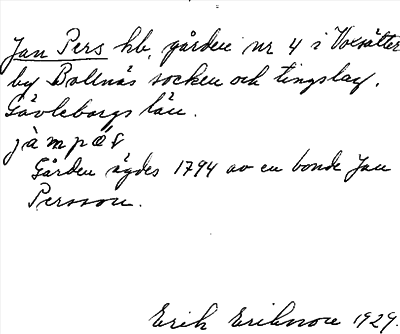 Jan Pers hb, gården nr 4 i Voxsätter
by Bollnäs socken och tingslag.
Gävleborgs län.
jàmpæs
Gården ägdes 1794 av en bonde Jan
Persson.
Erik Eriksson 1929.